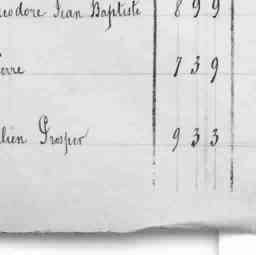 eodore Jean Baptiste 899
ierre 739
lien Prosper 933